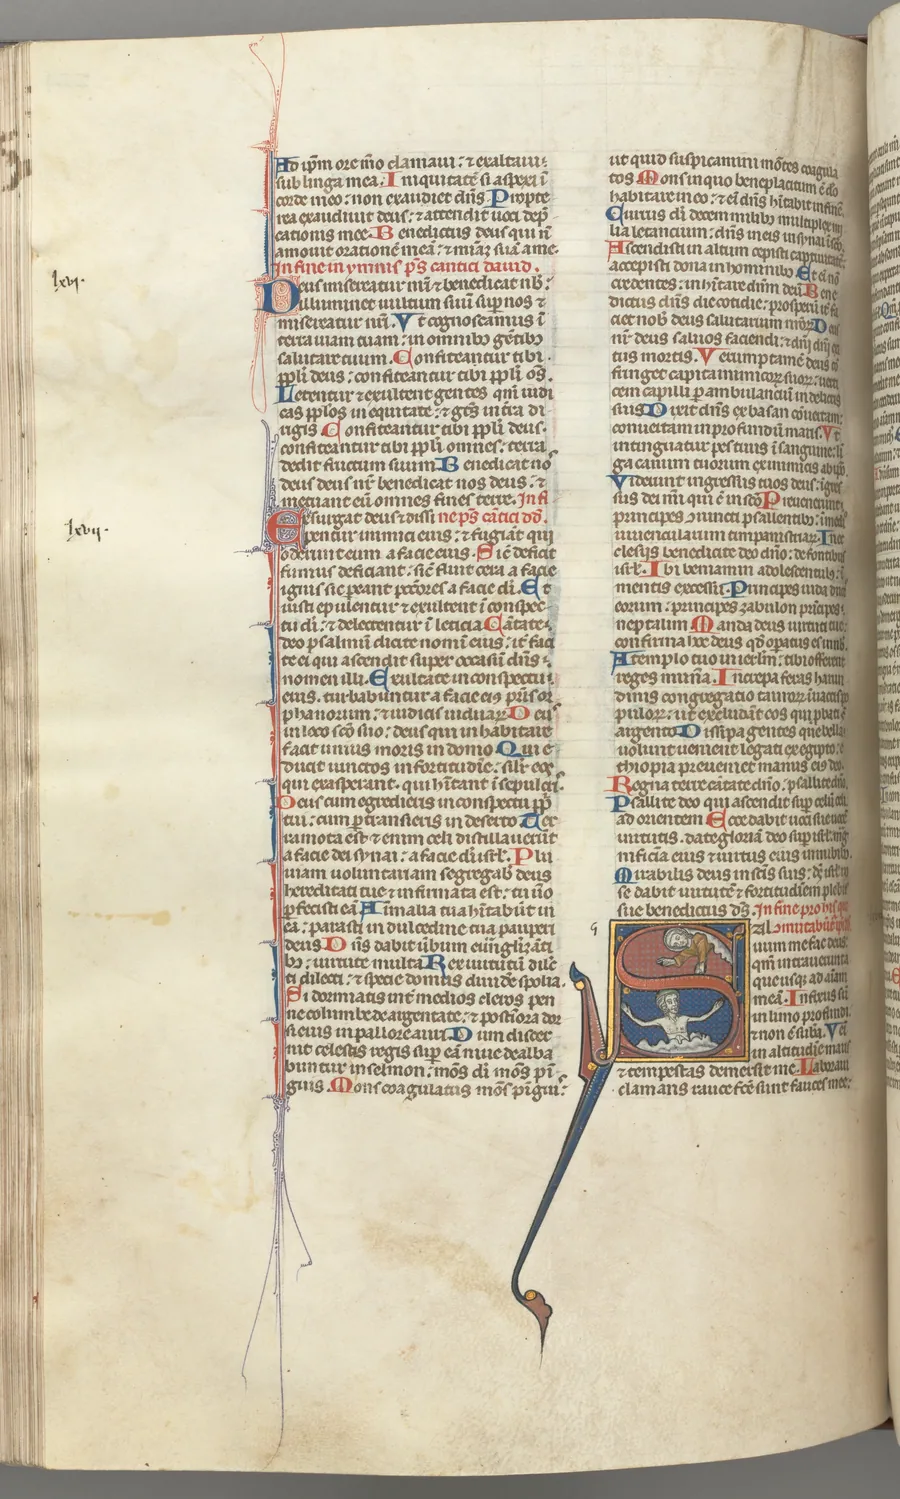 Ad ip̄m ore m̄o clamaui: ⁊ exaltaui:
sub linga mea. Iniquitatē si aspexi ī
corde meo: non exaudiet dn̄s. Propte
rea exaudiuit deus: ⁊ attendit uoci dep̄
cationis mee. Benedictus deus qui nō
amouit orationē meā: ⁊ mīaʒ suā a me.
In fine in ymnis pš cantici dauid.
lxvi.
Deus misereatur nr̄i ⁊ benedicat nb̄:
illuminet uultum suū sup nos ⁊
misereatur nr̄i. Vt cognoscamus ī
terra uiam tuam: in omnibꝰ gētibꝰ
salutare tuum. Confiteantur tibi
ppl̄i deus: confiteantur tibi ppl̄i os̄.
Letentur ⁊ exultent gentes qm̄ iudi
cas ppl̄os in equitate: ⁊ gētes in t̄ra di
rigis Confiteantur tibi ppl̄i deus.
confiteantur tibi ppl̄i omnes: terra
dedit fructum suum Benedicat nō
deus deus nr̄ benedicat nos deus: ⁊
metuant eū omnes fines terre. In fi
lxvii.
Exsurgat deus ⁊ dissi ne pš cātici dd̄.
pentur inimici eius: ⁊ fugiāt qui
oderunt eum a facie eius. Sic̄ deficit
fumus deficiant: sic̄ fluit cera a facie
ignis sic pereant pc̄c̄ores a facie dī. Et
iusti epulentur ⁊ exultent ī conspec
tu dī: ⁊ delectentur ī leticia Cātate
deo psalmū dicite nomī eius: it̄ faci
te ei qui ascendit super occasū dn̄s
nomen illi. Exultate in conspectu
eius. turbabuntur a facie eiꝰ pr̄is or
phanorum: ⁊ iudicis uiduaꝝ Deus
in loco sc̄o suo: deus qui in habitare
facit unius moris in domo Qui e
ducit uinctos in fortitudīe: silr̄ eos
qui exasperant. qui hītant ī sepulcꝭ.
Deus cum egredieris in conspectu pp̄li
tui: cum ptransieris in deserto Ter
ra mota est: ⁊ enim celi distillauerūt
a facie dei synai: a facie dī isrl̄. Plu
uiam voluntariam segregab̄ deus
hereditati tue ⁊ infirmata est: tu ūo
pfecisti eā Aīmalia tua hītabūt in
ea: parasti in dulcedine tua pauperi
deus Dn̄s dabit ūbum euāglīzāti
bꝰ: uirtute multa Rex uirtutū dilc̄
ti dilecti: ⁊ speciei domus diuidere spolia.
Si dormiatis int̄ medios cleros pen
ne columbe deargentate: ⁊ posteriora dor
si eius in pallore auri Dum discer
nit celestis regis sup eā niue dealba
buntur in selmon: mōs dī mōs pī
guis. Mons coagulatus mōs pīguis
ut quid suspicamini mōtes coagula
tos Mons in quo beneplacitum ē dō
habitare in eo: ⁊ ei dn̄s hītabit in finē
Currus dī decem milibꝰ multiplex mi
lia letancium: dn̄s in eis in synai ī sc̄o.
Ascendisti in altum cepisti captiuitatē:
accepisti dona in hominibꝰ Et ei nō
credentes: in hītare dn̄m deū Bene
dictus dn̄s die cotidie: prosperū it̄ fa
ciet nob̄ deus salutarium nr̄oꝝ Deus
nr̄ deus saluos faciendi: ⁊ dn̄i dn̄i exi
tus mortis. Verumptamē deus cō
fringet capita inimicoꝝ suoꝝ: uerti
cem capilli pambulanciū in delictis
suis Dixit dn̄s ex basan cōuertam:
conuertam in profundū maris. Vt
intinguatur pes tuus ī sanguine: lī
ga canum tuorum ex inimicis ab ip̄o
Viderunt ingressus tuos deus: īgres
sus dei mī qui ē in sc̄o Preuenerunt
principes ꝯiuncti psallentibꝰ: ī medio
iuuencularum timpanistriaꝝ. In ec
clesijs benedicite deo dn̄o: de fontibꝰ
isrl̄. Ibi beniamin adolescentulꝰ: ī
mentis excessu. Principes iuda duces
eorum: principes zabulon prīcipes
neptalim Manda deus uirtuti tue:
confirma hoc deus qd̄ opatus es in nob̄.
A templo tuo in ierlm̄: tibi offerent
reges munīa. Increpa feras harun
dinis congregatio tauroꝝ ī uaccis po
puloꝝ: ut excludāt eos qui pbati sī
argento Dissipa gentes que bella
uolunt uenient legati ex egypto: e
thiopia preueniet manus eiꝰ deo.
Regna terre cātate dn̄o: psallite dn̄o.
Psallite deo qui ascendit sup celū celi
ad orientem Ecce dabit uoci sue uocē
uirtutis. date gloriā deo sup isrl̄: mag
nificīa eius ⁊ uirtus eius in nubibꝰ.
Mirabilis deus in sc̄is suis: dꝰ isrl̄ ip
se dabit uirtutē ⁊ fortitudiēm plebis
sue benedictus dꝰ. In fine pro his qui
9
Saluum me fac deus:
qm̄ intrauerunt a
que usque ad aīam
meā. Infixus sū
in limo profundi.
⁊ non ē sub̄a. Veī
in altitudīe maris
⁊ tempestas demersit me. Laboraui
clamans rauce fc̄e sunt fauces mee: